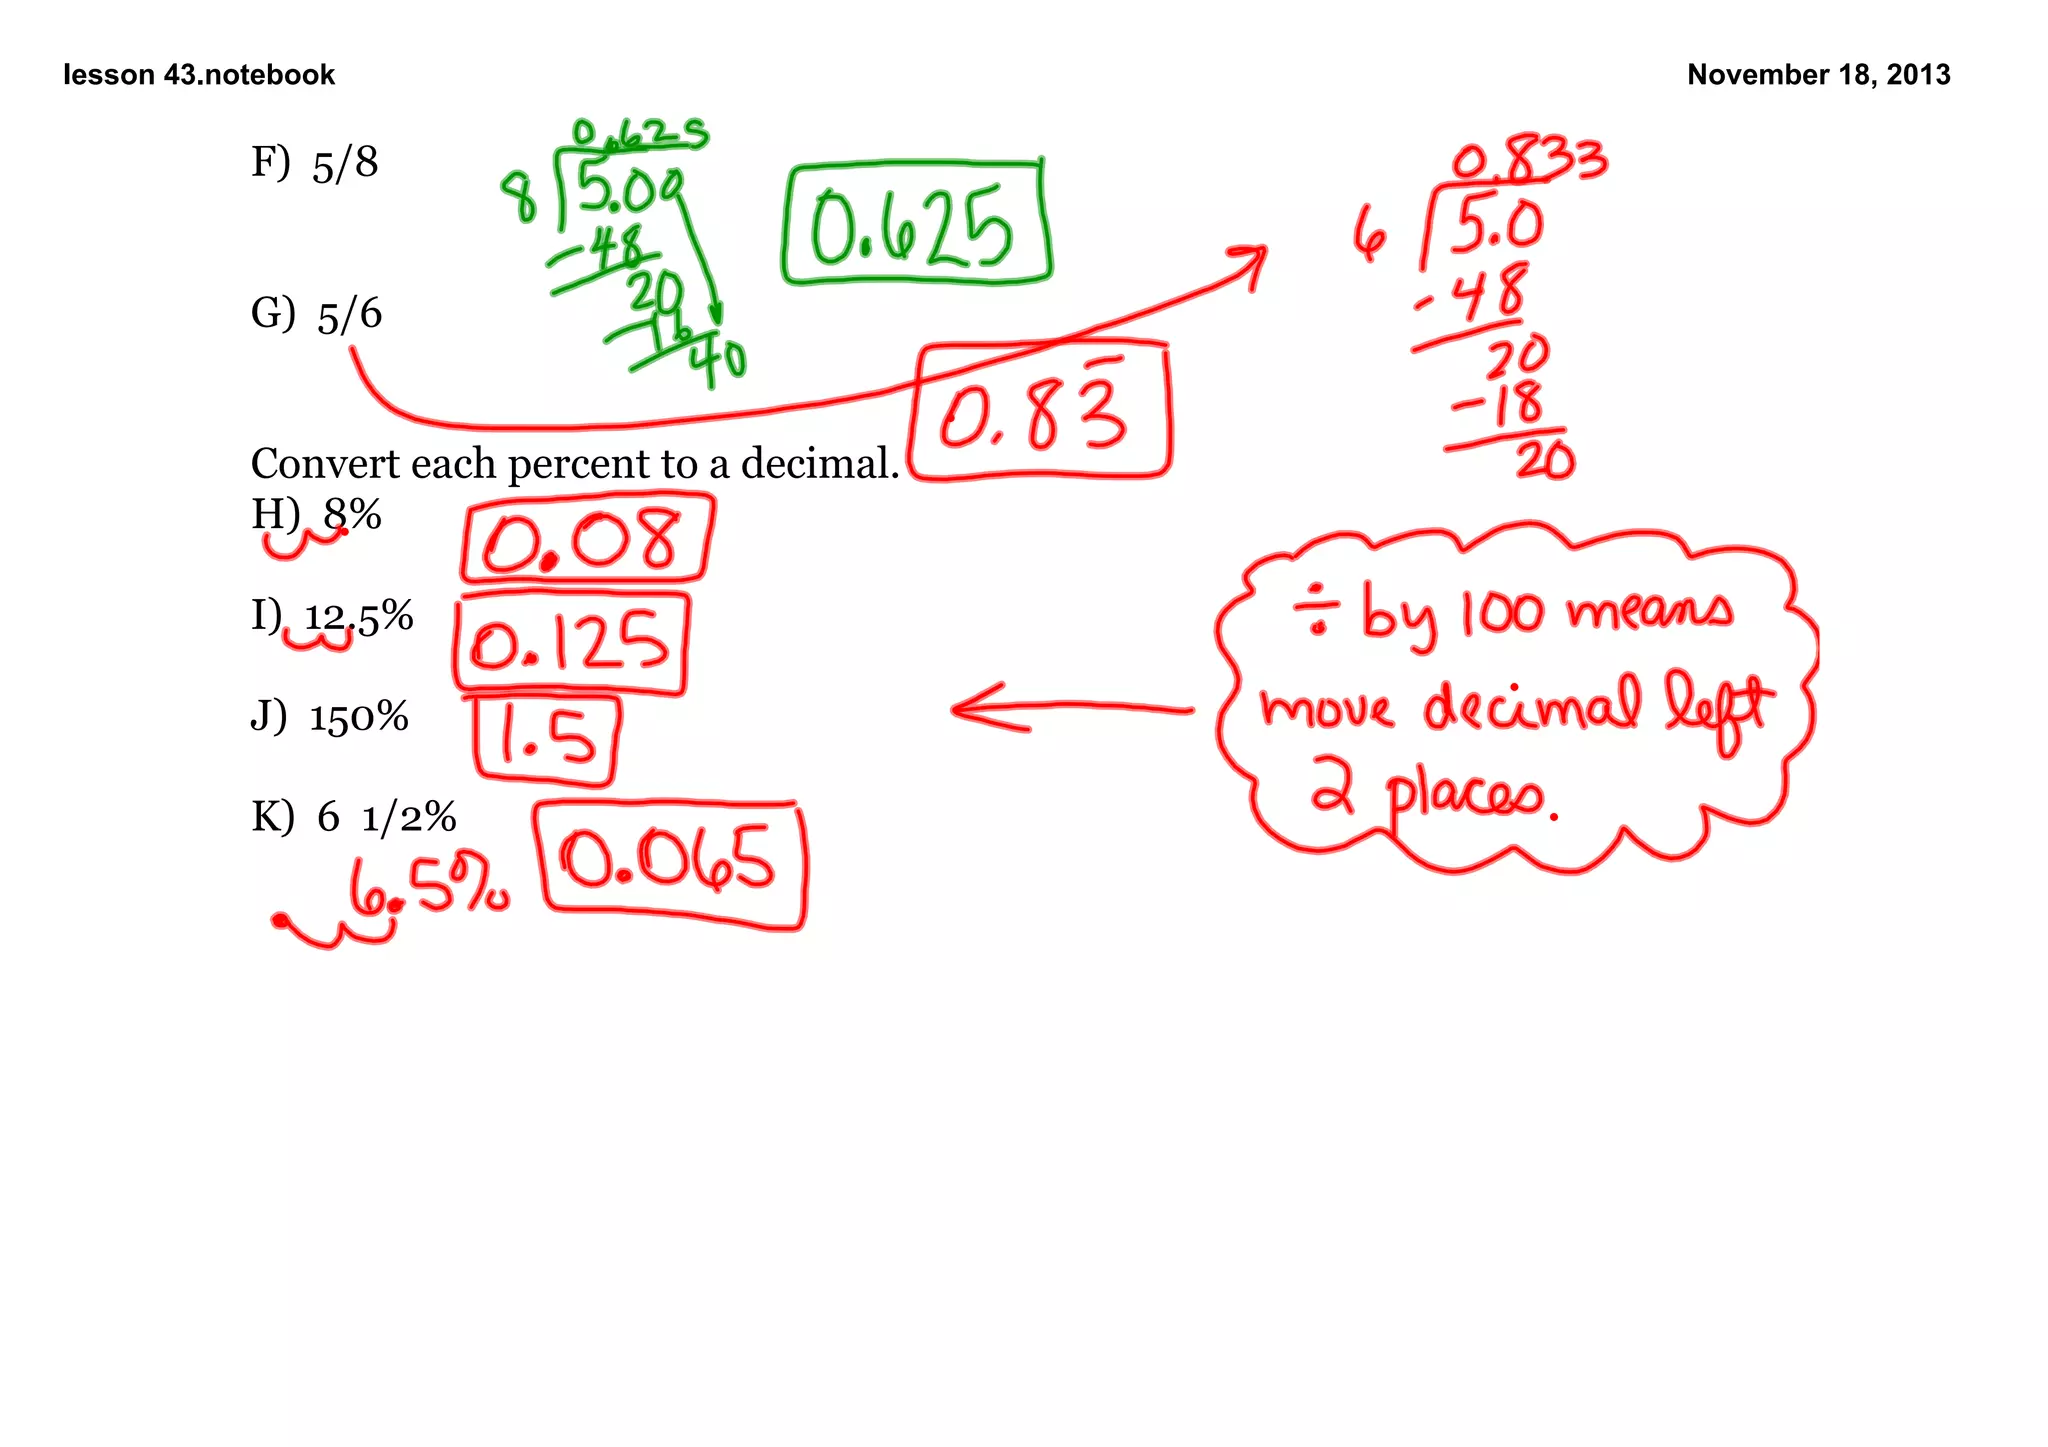 lesson 43.notebook
November 18, 2013
F) 5/8
0.625
8 5.00
-48
20
-16
40
0.625
0.833
6 5.0
-48
20
-18
20
G) 5/6
0.83̅
Convert each percent to a decimal.
H) 8%
0.08
I) 12.5%
0.125
J) 150%
1.5
÷ by 100 means
move decimal left
2 places.
K) 6 1/2%
6.5%
0.065